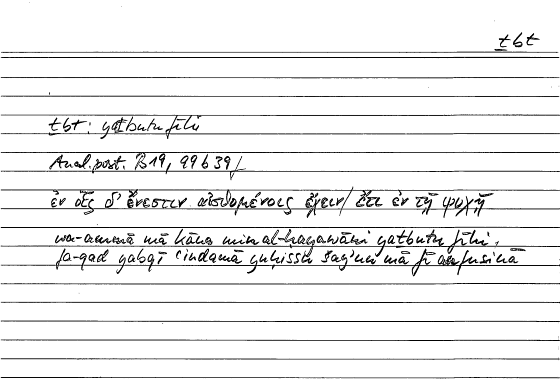 ṯbt
ṯbt: yaṯbutu fīhi
Anal. post. B19, 99b39f
ἐν οἷς δ' ἔνεστιν αἰσθομένοις ἔχειν / ἔτι ἐν τῇ ψυχῇ
wa-ammā mā kāna min al-ḥayawāni yaṯbutu fīhi,
fa-qad yabqī ʿindamā yuḥissu šayʾun mā fī anfusihā